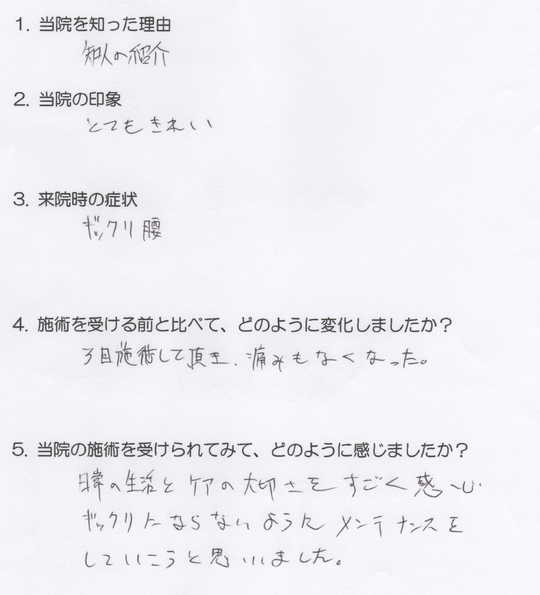 1. 当院を知った理由
知人の紹介
2. 当院の印象
とてもきれい
3. 来院時の症状
ギックリ腰
4. 施術を受ける前と比べて、どのように変化しましたか？
3回施術して頂き、痛みもなくなった。
5. 当院の施術を受けられてみて、どのように感じましたか？
日常の生活とケアの大切さをすごく感じ
ギックリにならないようにメンテナンスを
していこうと思いました。